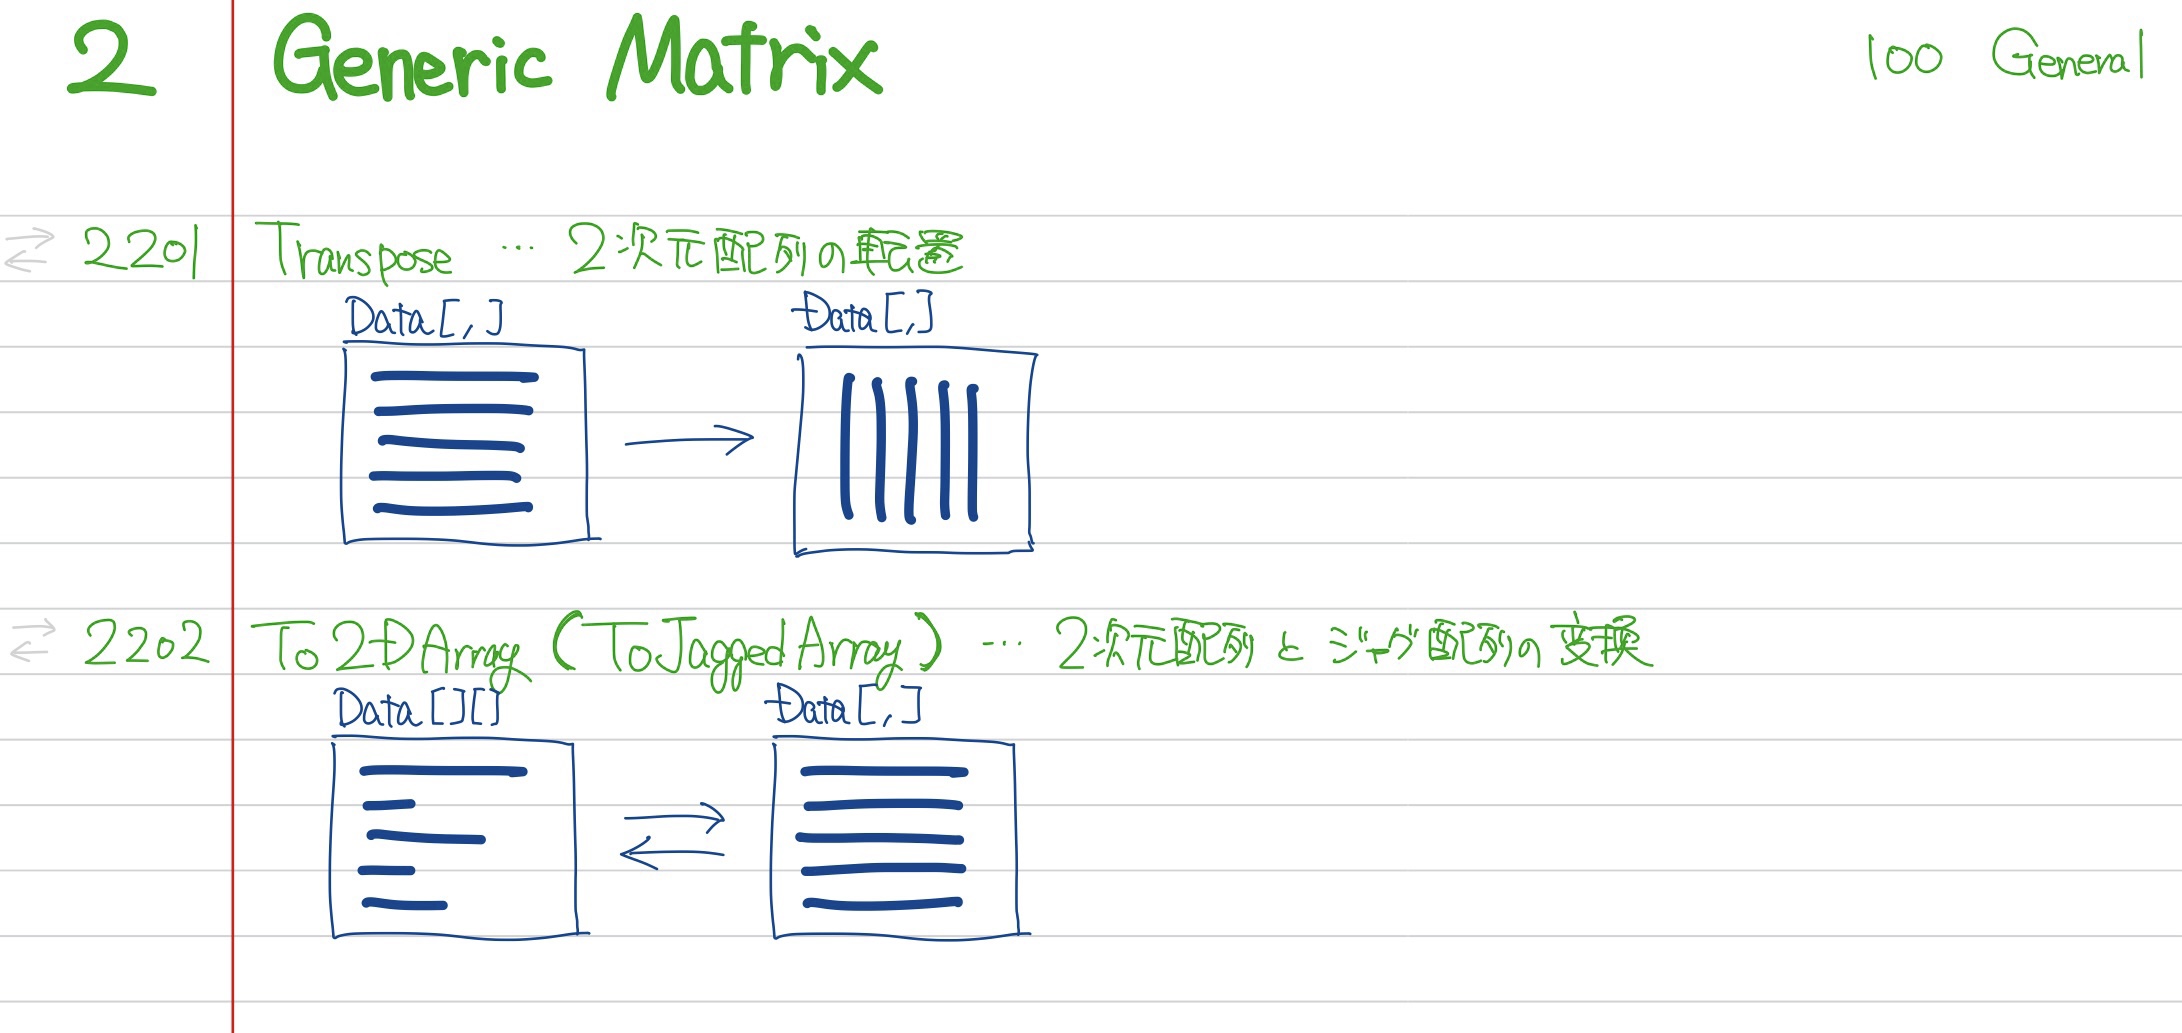 2 Generic Matrix 100 General
2201 Transpose … 2次元配列の転置
Data[,] Data[,]
2202 To2DArray (ToJaggedArray) … 2次元配列とジャグ配列の変換
Data[][] Data[,]